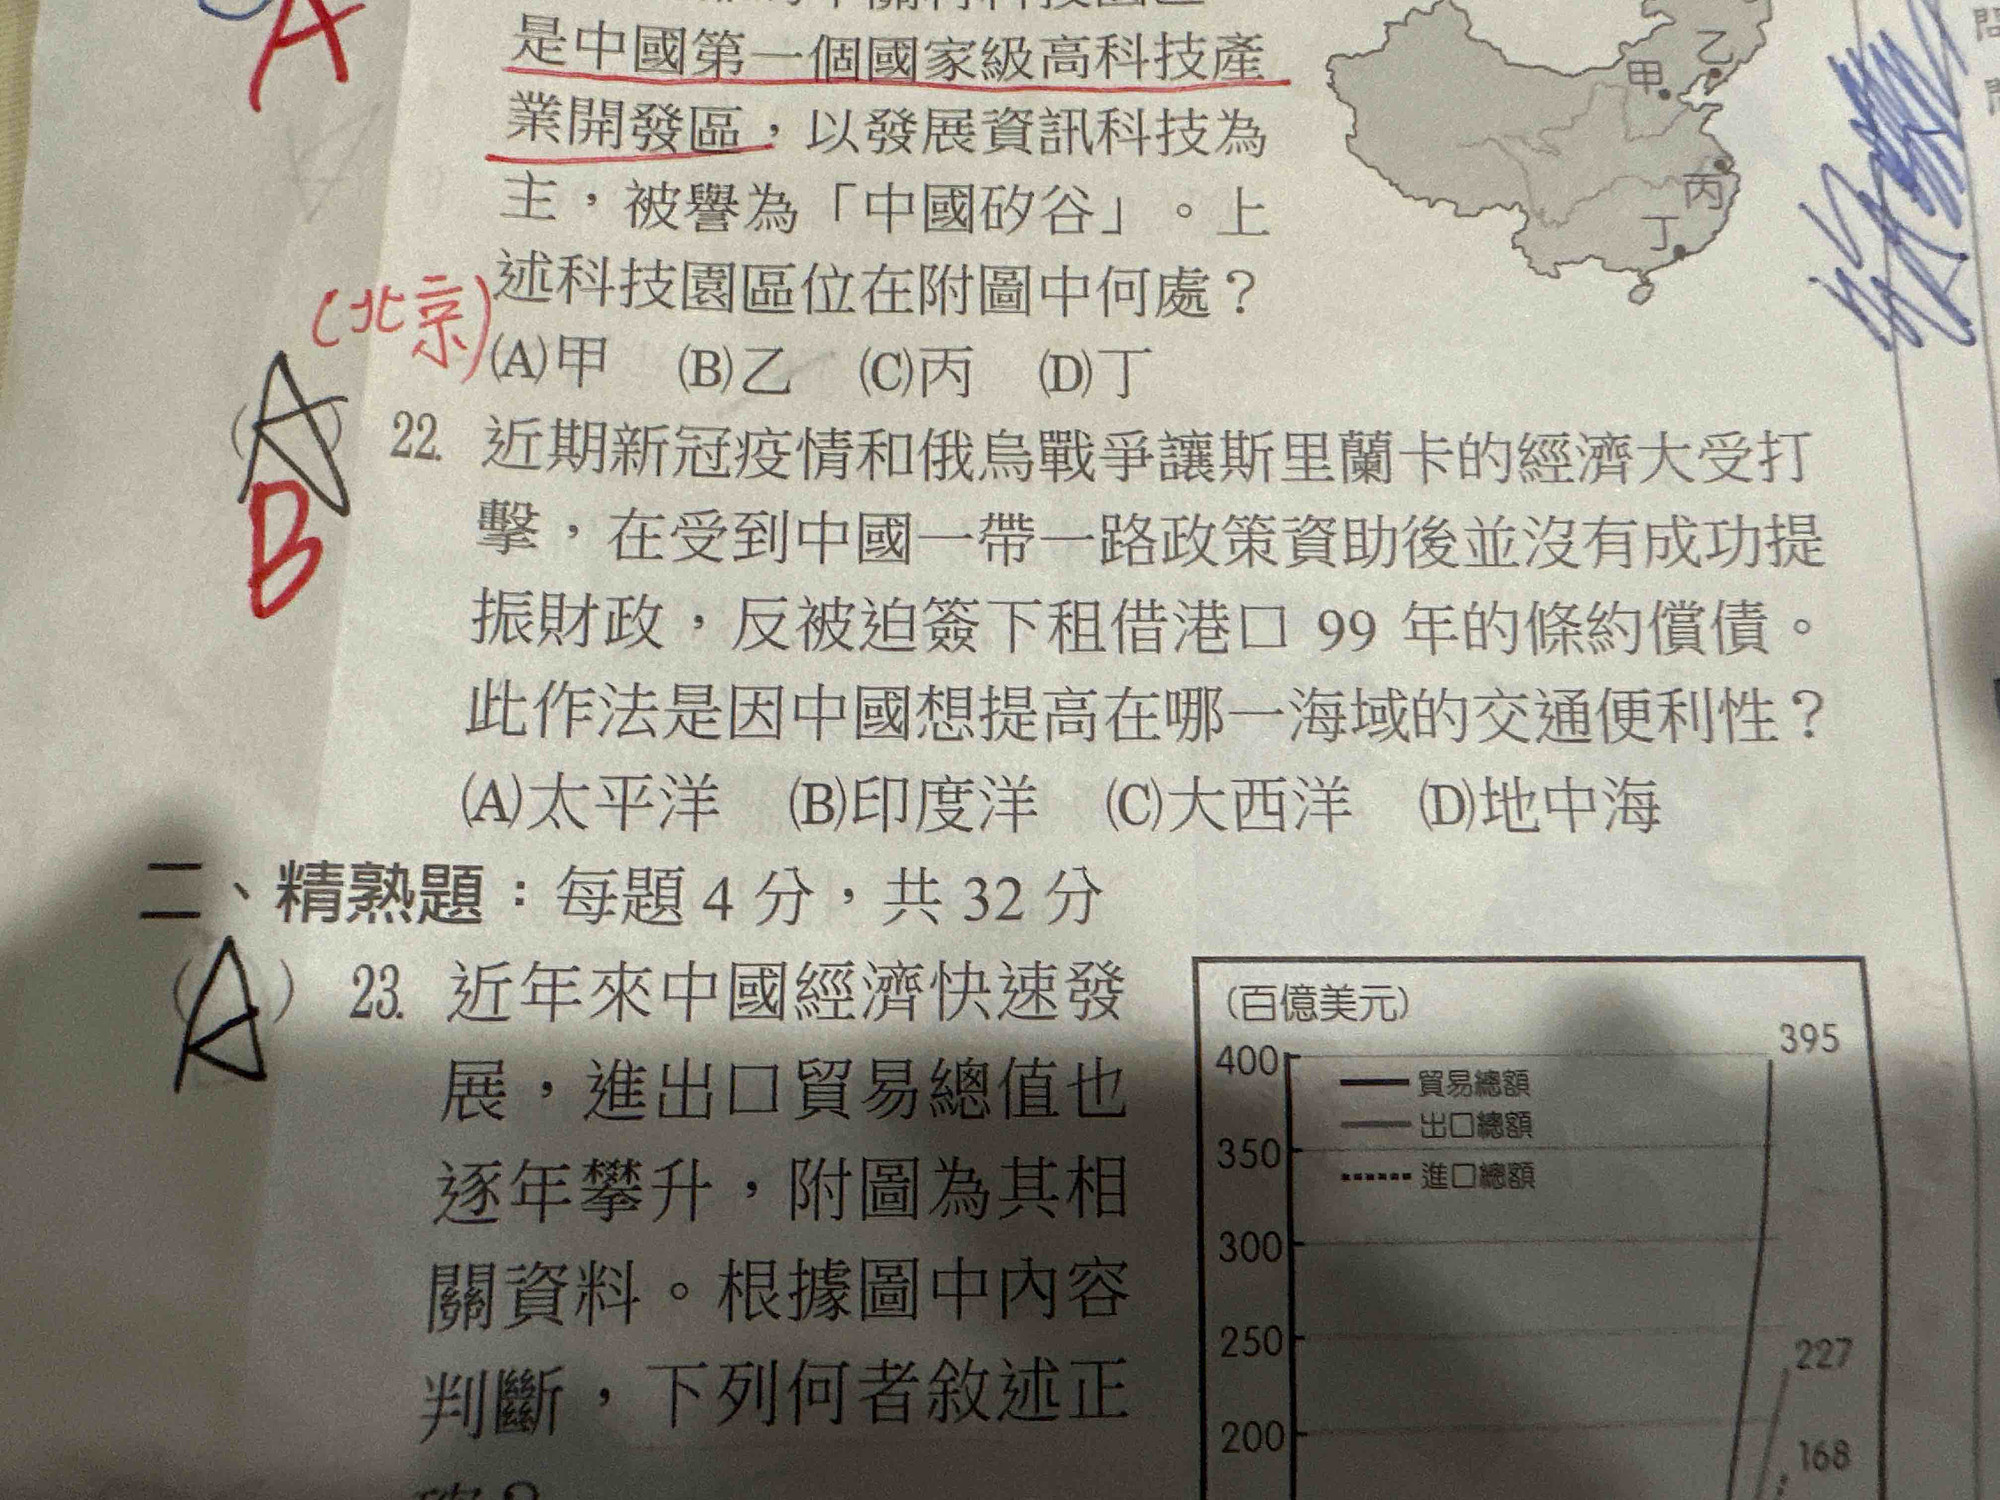 A
是中國第一個國家級高科技產
業開發區，以發展資訊科技為
主，被譽為「中國矽谷」。上
述科技園區位在附圖中何處？
(北京)
(A)甲 (B)乙 (C)丙 (D)丁
乙
甲
丙
丁
A
B
( ) 22. 近期新冠疫情和俄烏戰爭讓斯里蘭卡的經濟大受打
擊，在受到中國一帶一路政策資助後並沒有成功提
振財政，反被迫簽下租借港口 99 年的條約償債。
此作法是因中國想提高在哪一海域的交通便利性？
(A)太平洋 (B)印度洋 (C)大西洋 (D)地中海
二、精熟題：每題 4 分，共 32 分
(A) 23. 近年來中國經濟快速發
展，進出口貿易總值也
逐年攀升，附圖為其相
關資料。根據圖中內容
判斷，下列何者敘述正
確？
(百億美元)
395
400
貿易總額
出口總額
350
進口總額
300
250
227
200
168